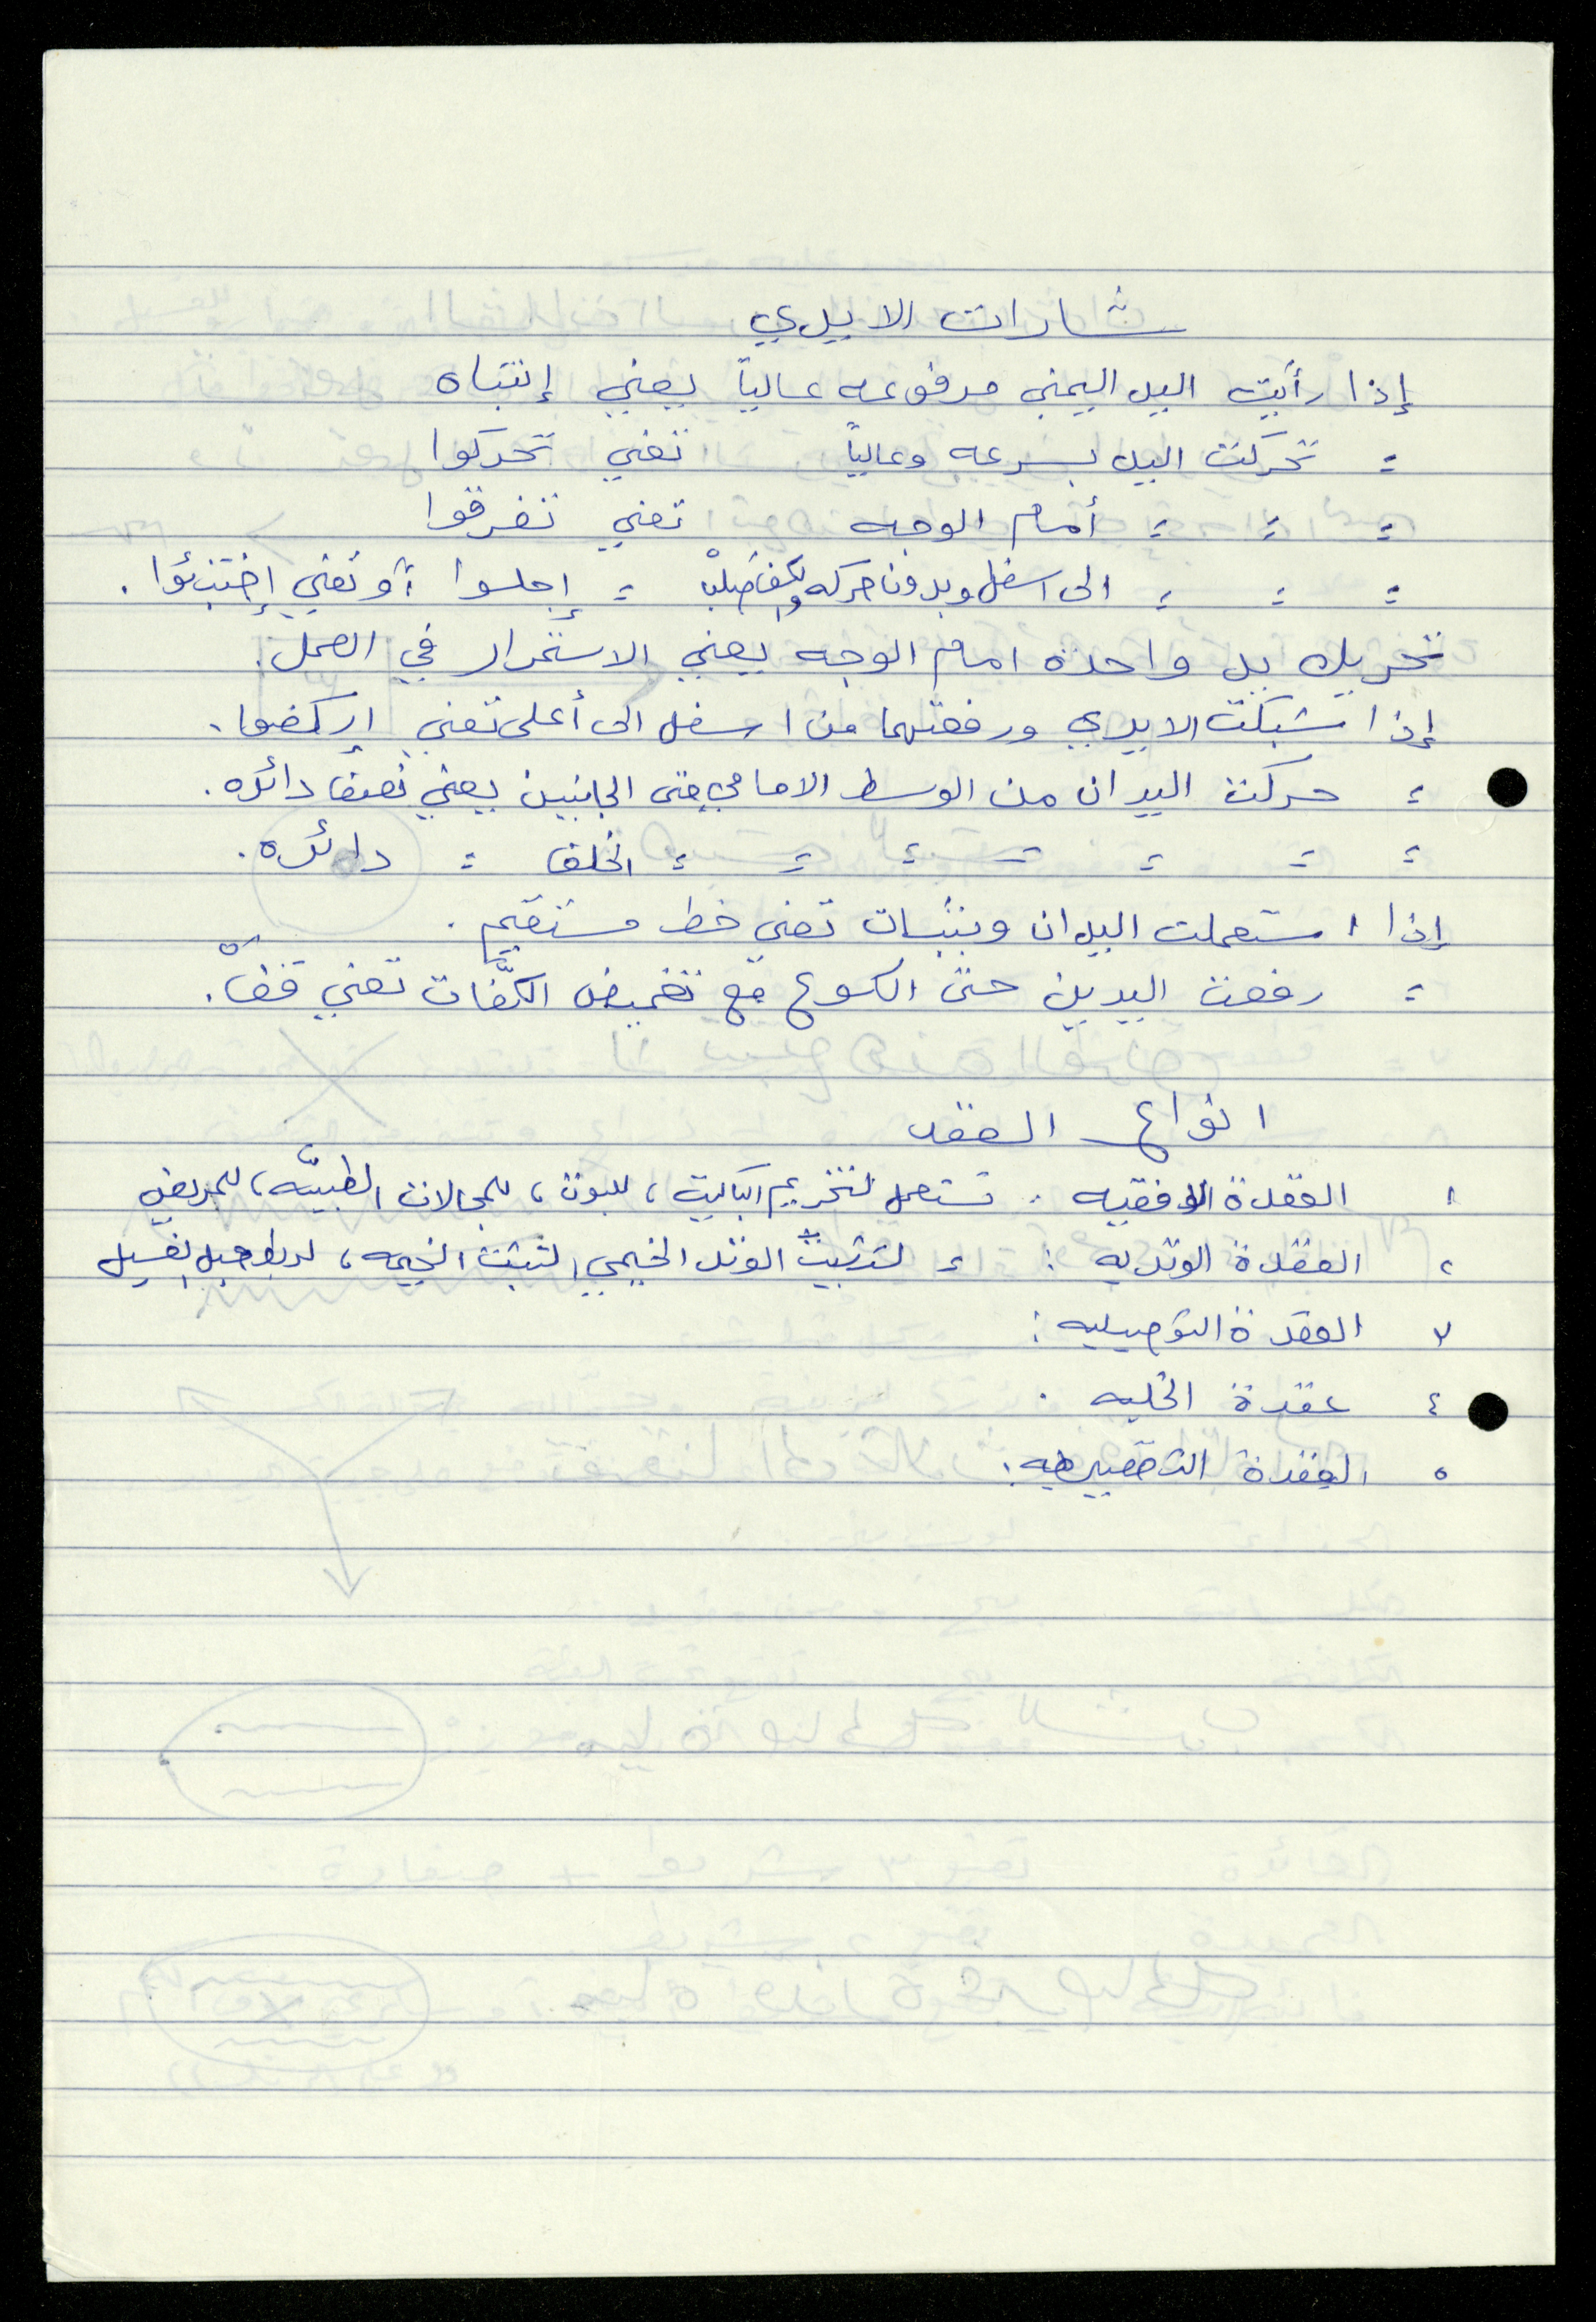 شارات الايدي
إذا رأيت اليد اليمنى مرفوعه عالياً يعني إنتباه
= تحركت اليد بسرعه وعالياً تعني تحركوا
= = = أمام الوجه تعني تفرقوا
= = = الى اسفل وبدون حركه = إجلسوا أو تعني إختبئوا .
تحريك يد واحدة امام الوجه يعني الاستمرار في العمل .
إذا شبكت الايدي ورفعتهما من اسفل الى أعلى تعني اركضوا .
= حركت اليدان من الوسط الامامي حتى الجانبين يعني نصف دائره .
= = = = = = = الخلف = دائره .
إذا استعملت اليدان وبثبات تعني خط مستقيم .
= رفعت اليدين حتى الكوع مع تغميض الكفّات تعني قفّ .
انواع العقد
١ العقدة الافقيه : تستعمل لتخريم الباكيت ، للبوت ، للمجالات الطبيّه ، للمريض
٢ العقدة الوتديه : = لتثبيت الوتد الخيمي لتثبت الخيمه ، لربط حبل الغسيل
٣ العقدة التوصيليه :
٤ عقدة الخليه .
٥ العقدة التقصيريه :